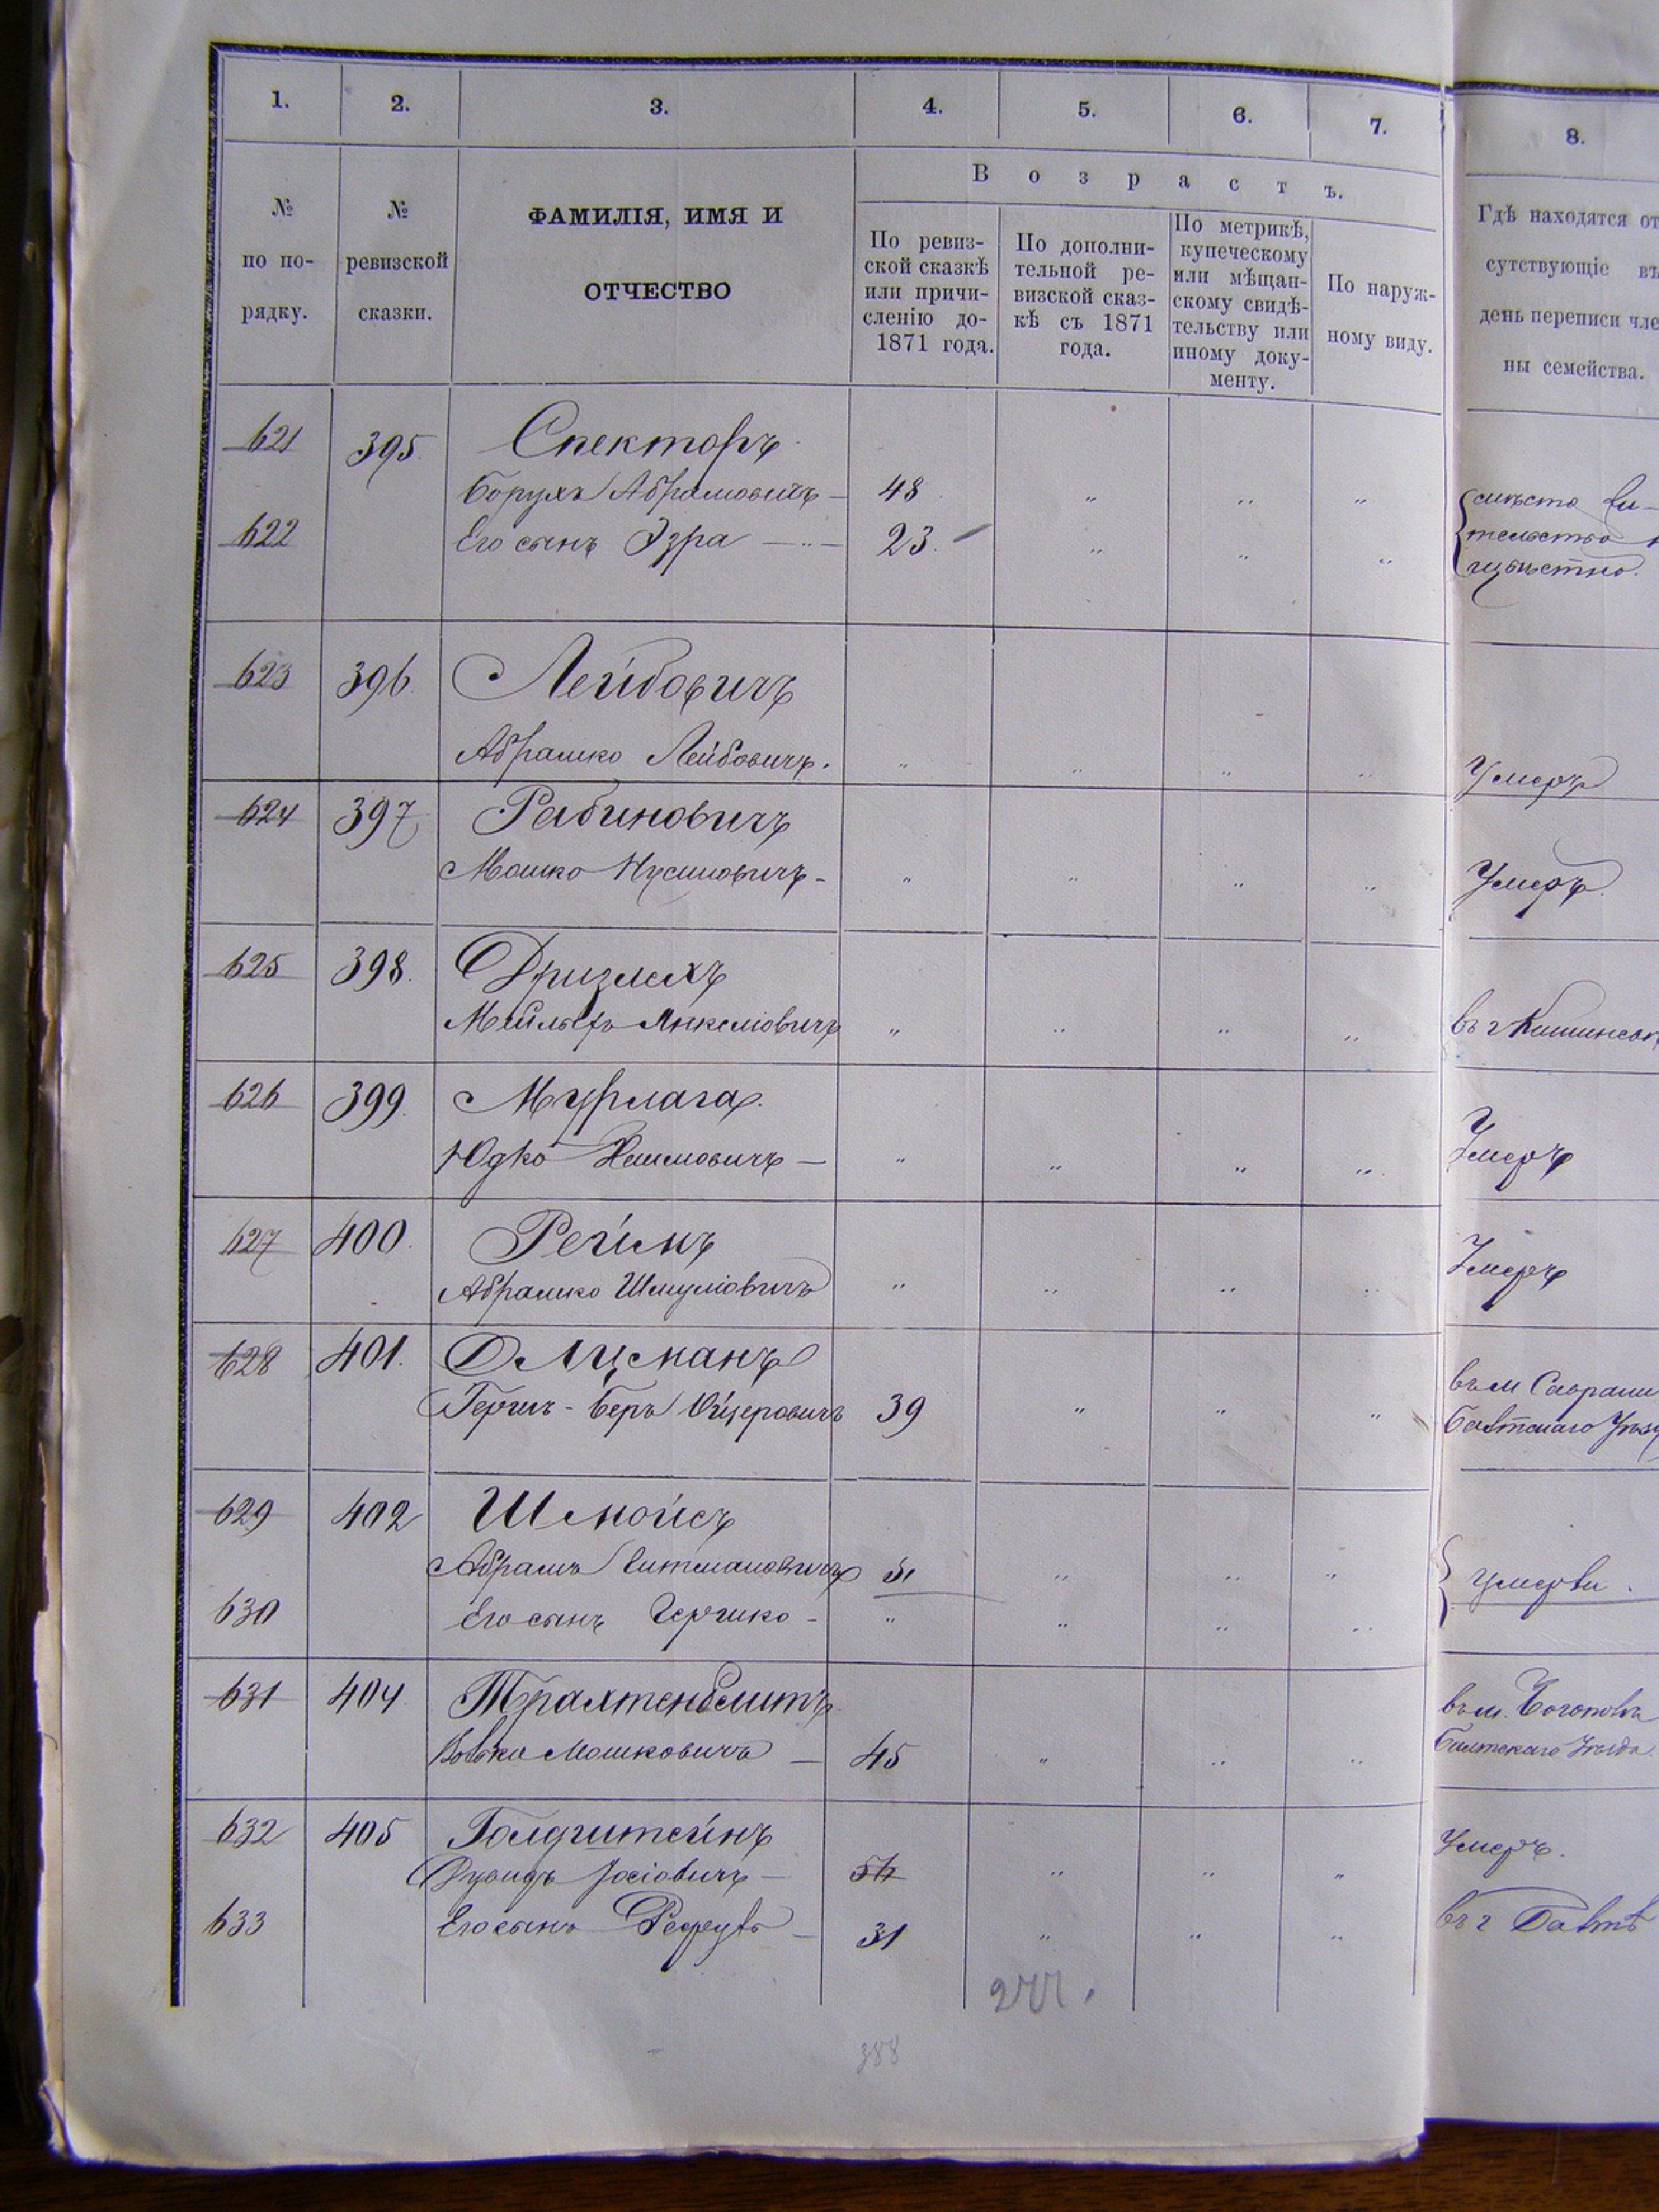 1. 2. 3. 4. 5. 6. 7. 8.
№ по по-рядку.
№ ревизской сказки.
ФАМИЛІЯ, ИМЯ И
ОТЧЕСТВО
Возрастъ.
По ревиз-
ской сказкѣ
или причи-
сленію до-
1871 года.
По дополни-
тельной ре-
визской сказ-
кѣ съ 1871
года.
По метрикѣ,
купеческому
или мѣщан-
скому свидѣ-
тельству или
иному доку-
менту.
По наруж-
ному виду.
Гдѣ находятся от
сутствующіе въ
день переписи чле
ны семейства.
621 395. Спекторъ
Борухъ Абрамовичъ — 48 „ „ „
622 Его сынъ Эзра — „ — 23. „ „ „
623 396. Лейбовичъ
Абрашко Лейбовичъ. „ „ „ „ Умеръ
624 397 Рабиновичъ
Мошко Нусимовичъ - „ „ „ „ Умеръ.
625 398. Дризлихъ
Янкеліовичъ „ „ „ „ въ г Кишинев
626 399. Мурлага.
Юдко Хаимовичъ — „ „ „ „ Умеръ
627 400. Рейнъ
Абрашко Шмуліовичъ „ „ „ „ Умеръ
628 401.
Гершъ - Беръ 39 „ „ „ въ м Саврани
Балтскаго Уѣзд
629 402 Шмойсъ
Абрамъ „ „ „ Умерли.
630 Его сынъ Гершко - „ „ „ „
631 404. Трахтенб
Мошковичъ — 45 „ „ „ въ м.
Балтскаго Уѣзда.
632 405 Голдштейнъ
Дувидъ Іосіовичъ — „ „ „ Умеръ.
633 Его сынъ — 31 „ „ „ въ г Балтѣ
388